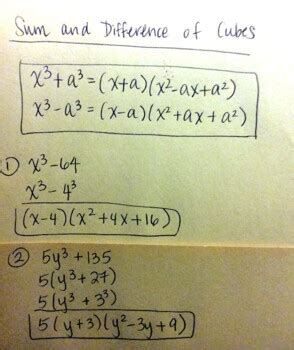 Sum and Difference of Cubes
x³+a³=(x+a)(x²-ax+a²)
x³-a³=(x-a)(x²+ax+a²)
① x³-64
x³-4³
(x-4)(x²+4x+16)
② 5y³+135
5(y³+27)
5(y³+3³)
5(y+3)(y²-3y+9)